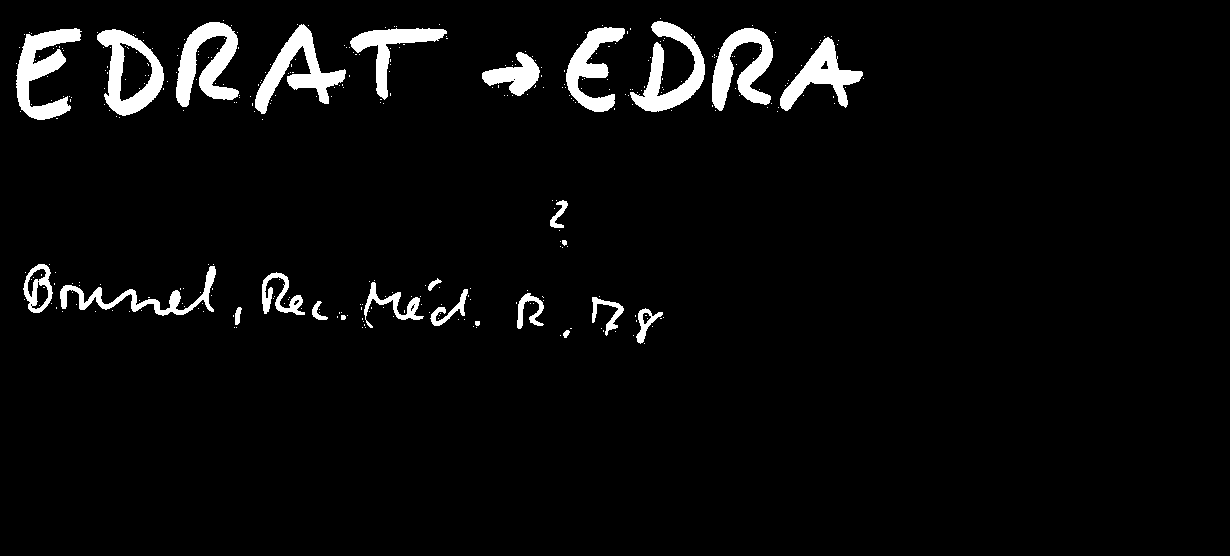 EDRAT → EDRA
?
Brunel, Rec. Méd. R. 78